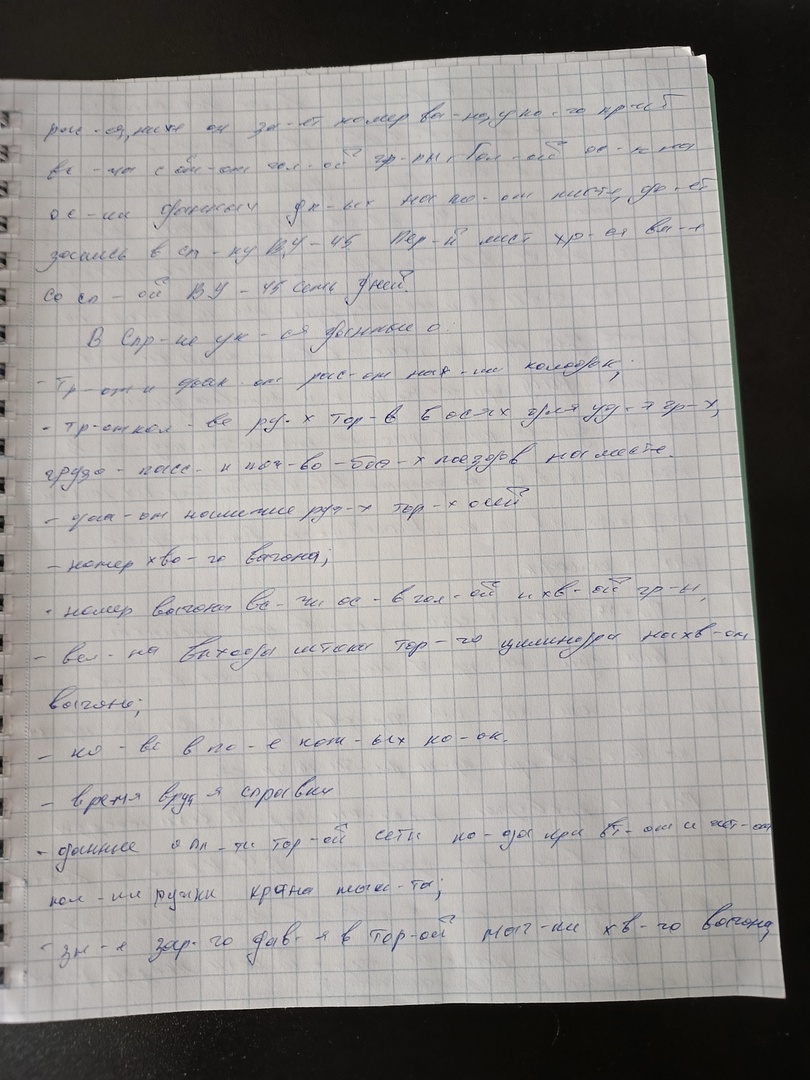 рас-ся, ниже он за-ет номер ва-на, у ко-го пр-ш б
ве-ча с ом-ом гол-ой гр-пы. Гол-ой ос-к на
ос-ии данных на по-ом листе, де-ет
запись в сп-ку ВУ-45 Пер-й лист хр-ся вм-е
со сп-ой ВУ-45 семь дней.
В Спр-ке ук-ся данные о:
- Тр-ом и факт-ом рас-ом наж-ии колодок;
- тр-ом кол-ве ру-х тор-в в осях для уд-я гр-х,
грузо-пасс- и поч-во-баг-х поездов на месте.
- фак-ом наличие руч-х тор-х осей
- номер хво-го вагона;
- номер вагона вс-чи ос-в гол-ой и хв-ой гр-ы,
- вел-на выхода штока тор-го цилиндра на хв-ом
вагоне;
- ко-во в по-е ком-ых ко-ок.
- время вруч-я справки
- данные о пл-ти тор-ой сети по-да при вт-ом и чет-ом
пол-ии ручки крана маш-та;
- зн-я зар-го дав-я в тор-ой маг-ли хв-го вагона,